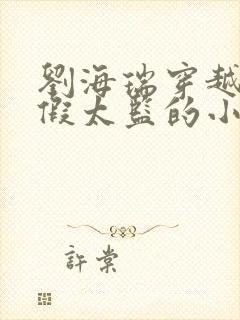 劉海瑞穿越
假太監的小
許棠